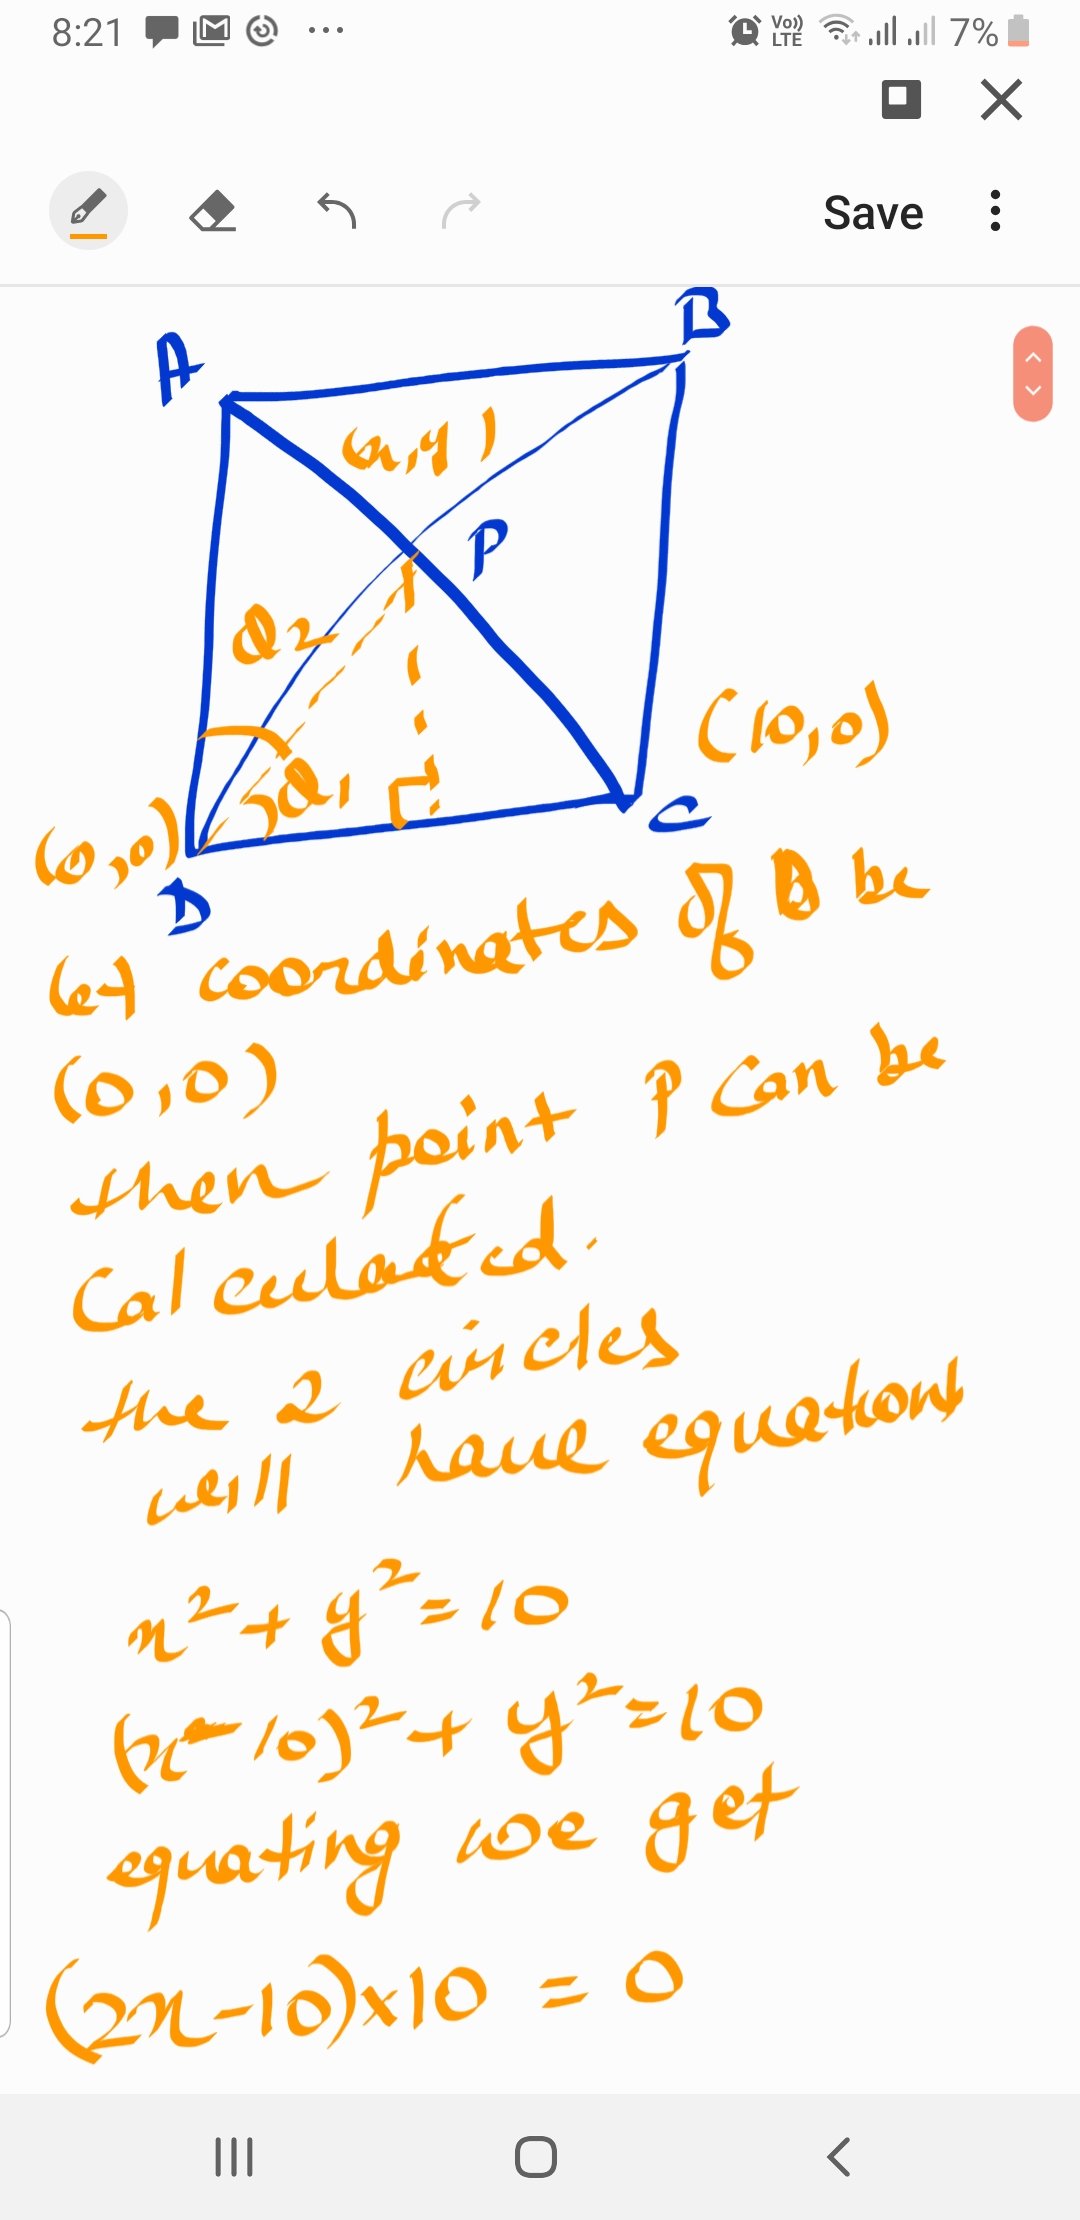 8:21
Vo))
LTE
7%
Save
B
A
(x,y)
P
θ2
(10,0)
θ1
(0,0)
C
D
let coordinates of D be
(0,0)
then point P can be
Calculated.
the 2 circles
will have equations
x²+ y²=10
(x-10)²+ y²=10
equating we get
(2x-10)x10 = 0